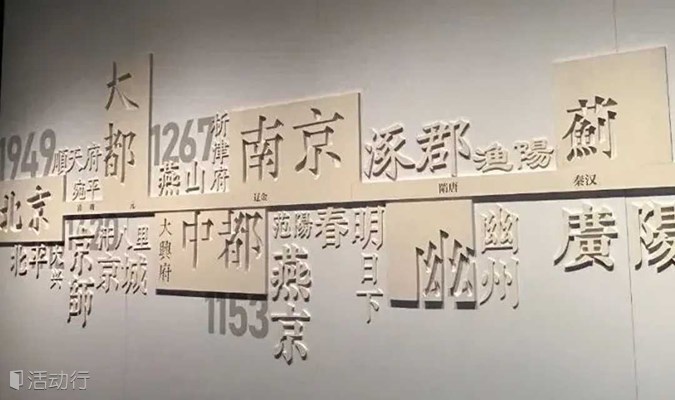 1949
北京
順天府
宛平
大都
1267
燕山
析津府
南京
涿郡
渔陽
薊
明清
元
辽金
隋唐
秦汉
北平
大兴
京師
汴京
八里城
大興府
中都
1153
范陽
燕京
春明
日下
幽
幽州
廣陽
活动行